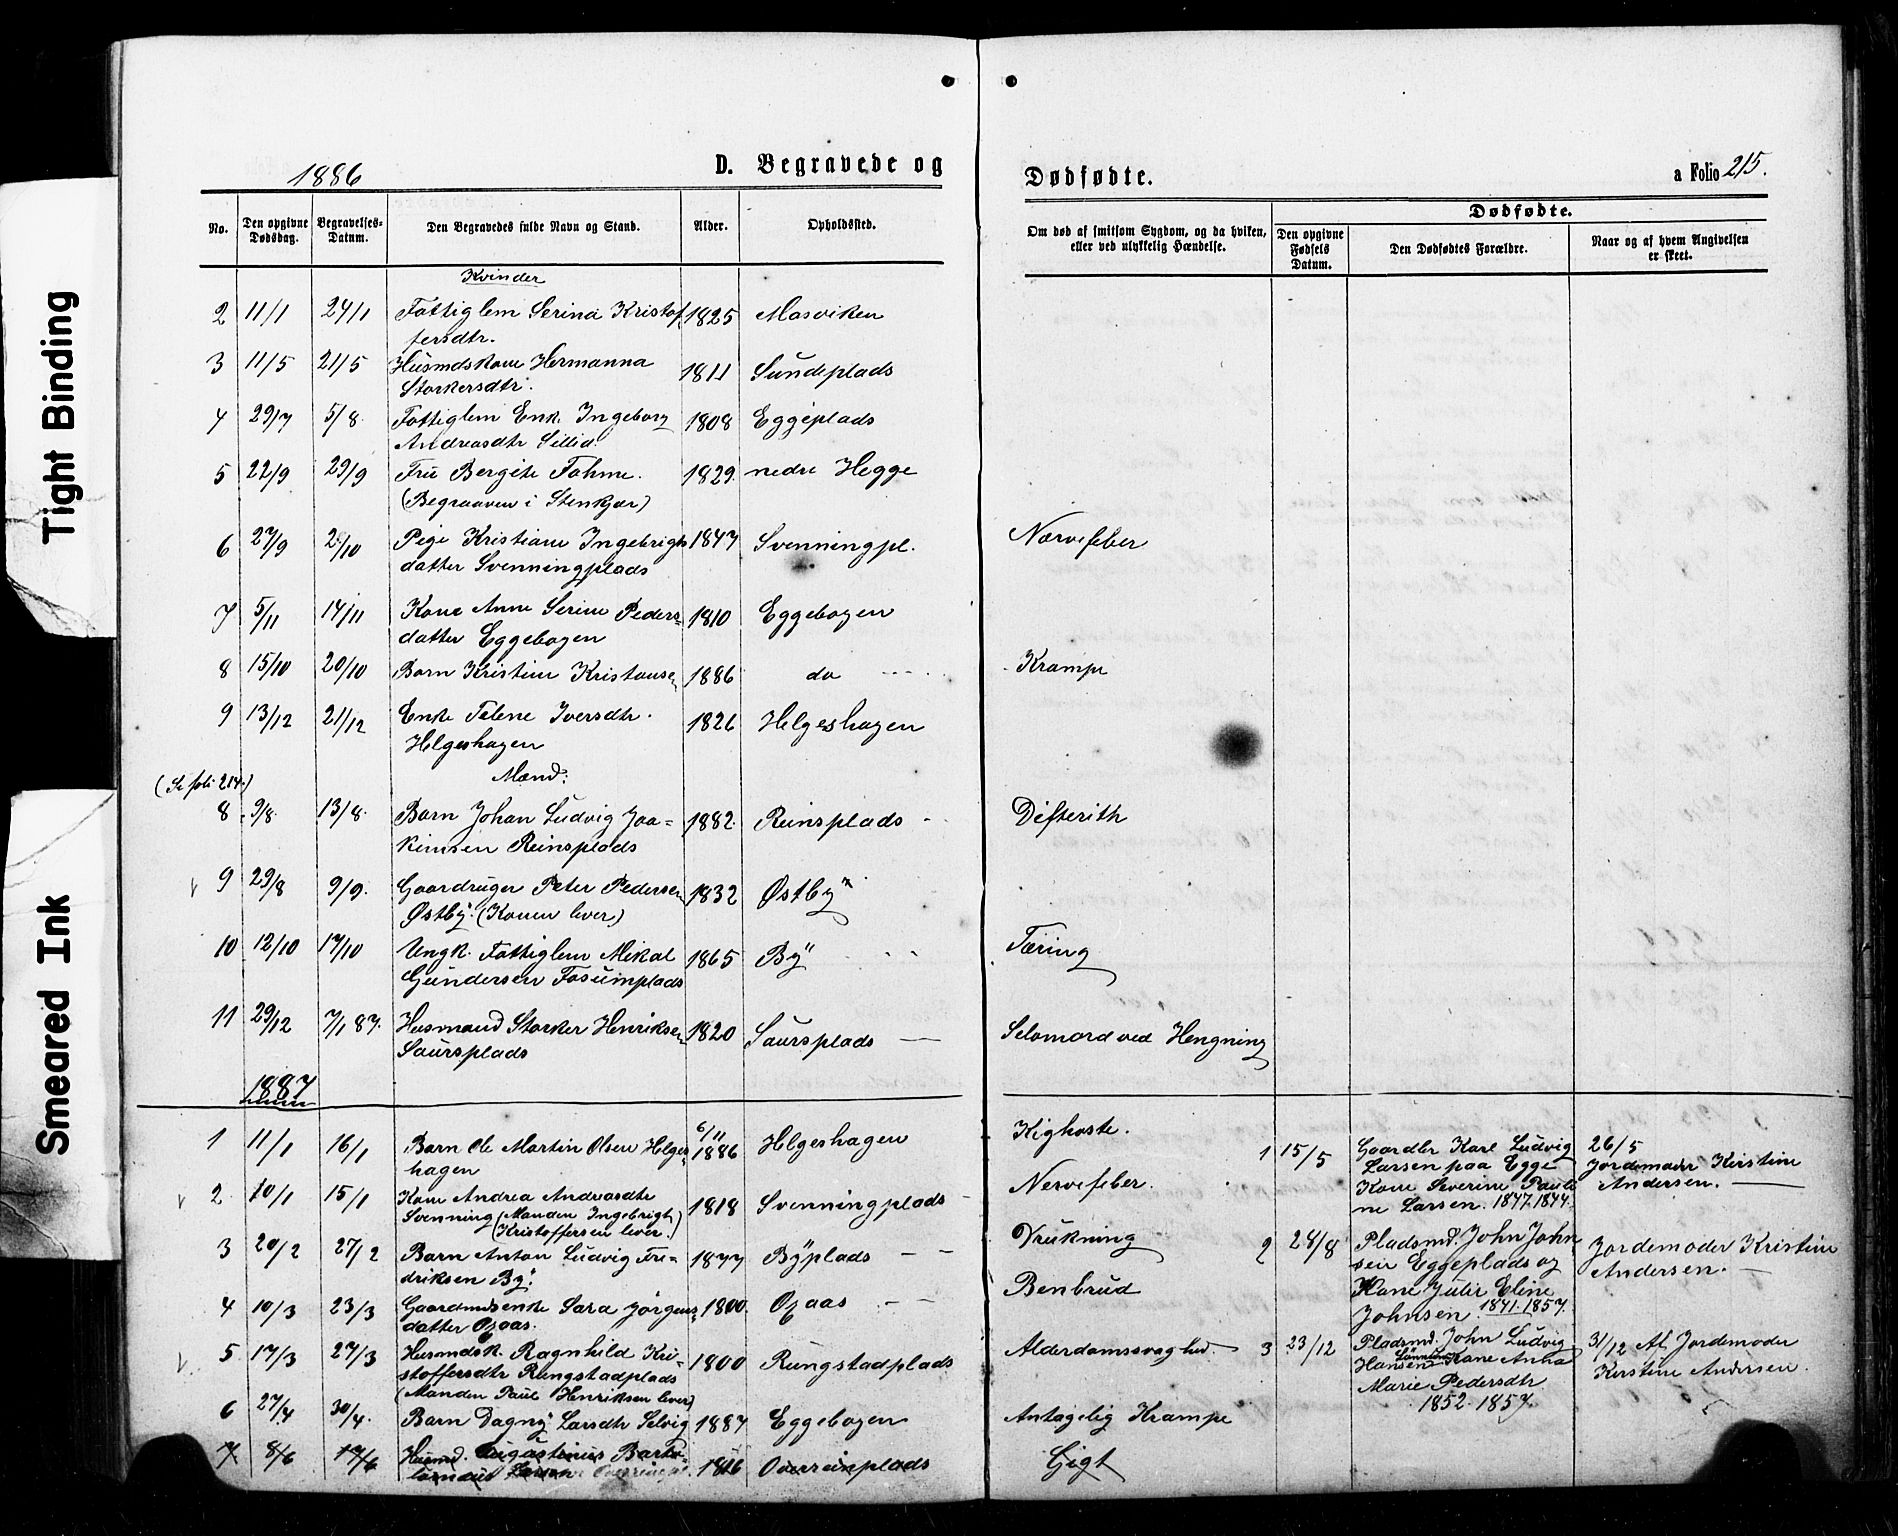 Tight Binding
Smeared Ink
1886
D. Begravede og
Dødfødte.
a Folio 215.
No.
Den opgivne Dødsdag.
Begravelses-Datum.
Den Begravedes fulde Navn og Stand.
Alder.
Opholdssted.
Om død af smitsom Sygdom, og da hvilken,
eller ved ulykkelig Hændelse.
Dødfødte.
Den opgivne Fødsels Datum.
Den Dødfødtes Forældre.
Naar og af hvem Angivelsen er skeet.
Kvinder
2 11/1 24/1 Fattiglem Serina Kristof- 1825 Mosviken
fersdtr.
3 11/5 21/5 Husmdskone Hermanna 1811 Sundeplads
Storkersdtr.
4 29/7 5/8. Fattiglem Enk. Ingeborg 1808 Eggeplads
Andreasdtr
5 22/9 29/9 Fru Bergite 1829. nedre Hegge
(Begraaven i Stenkjær)
6 27/9 2/10 Pige Kristiane Ingebrigts 1847 Svenningpl. Nærvefeber
datter Svenningplads
7 5/11 14/11 Kone Anne Serine Peders= 1810 Eggebogen
datter Eggebogen
8 15/10 20/10 Barn Kristine Kristansen 1886 do Krampe
9 13/12 21/12 Enke Iversdtr. 1826 Helgeshagen
Helgeshagen
Mænd:
(Se foli 214.)
8 9/8. 13/8. Barn Johan Ludvig Joa= 1882. Reinsplads Difterith
kimsen Reinsplads
9 29/8 9/9. Gaardruger Peter Pedersen 1832 Østby
Østby. (Konen lever)
10 12/10 17/10 Ungk. Fattiglem Mikal 1865 By Tæring
Gundersen Fosumplads
11 29/12 7/1 87. Husmand Storker Henriksen 1820 Saursplads — Selvmord ved Hengning
Saursplads
1887
1 11/1 16/1 Barn Ole Martin Olsen Helges= 6/11 1886 Helgeshagen Kighoste.
hagen
2 10/1 15/1 Kone Andrea Andreasdtr 1818 Svenningplads Nervefeber.
Svenning (Manden Ingebrigt
Kristoffersen lever.)
3 20/2 27/2 Barn Anton Ludvig Fre= 1877 Byplads — — Drukning
driksen By.
4 10/3 23/3 Gaardmdsenke Sara Jørgens= 1800. Opaas Benbrud
datter Opaas.
5 17/3 27/3 Husmdsk. Ragnhild Kri= 1800 Rungstadplads Alderdomssvaghed.
stoffersdtr Rungstadplads
(Manden Paul Henriksen lever)
6 27/4 30/4. Barn Dagny Larsdtr Selvig 1887 Eggebogen Antagelig Krampe
7 8/6 17/6 Husmd. Augustinus 1816 Overreinplads Gigt
1 15/5 Gaardbr Karl Ludvig 26/5
Larsen paa Egge Jordemoder Kirstine
Kone Severine Pauli Andersen. —
ne Larsen. 1847. 1844.
2 24/8 Pladsmd. John John Jordemoder Kristine
sen Eggeplads og Andersen. —
Kone Julie Eline
Johnsen. 1841. 1857.
3 23/12 Pladsmd. John Ludvig 31/12 Af Jordemoder
Hansen Kone Anna Kirstine Andersen.
Marie Pedersdtr
1852. 1857.